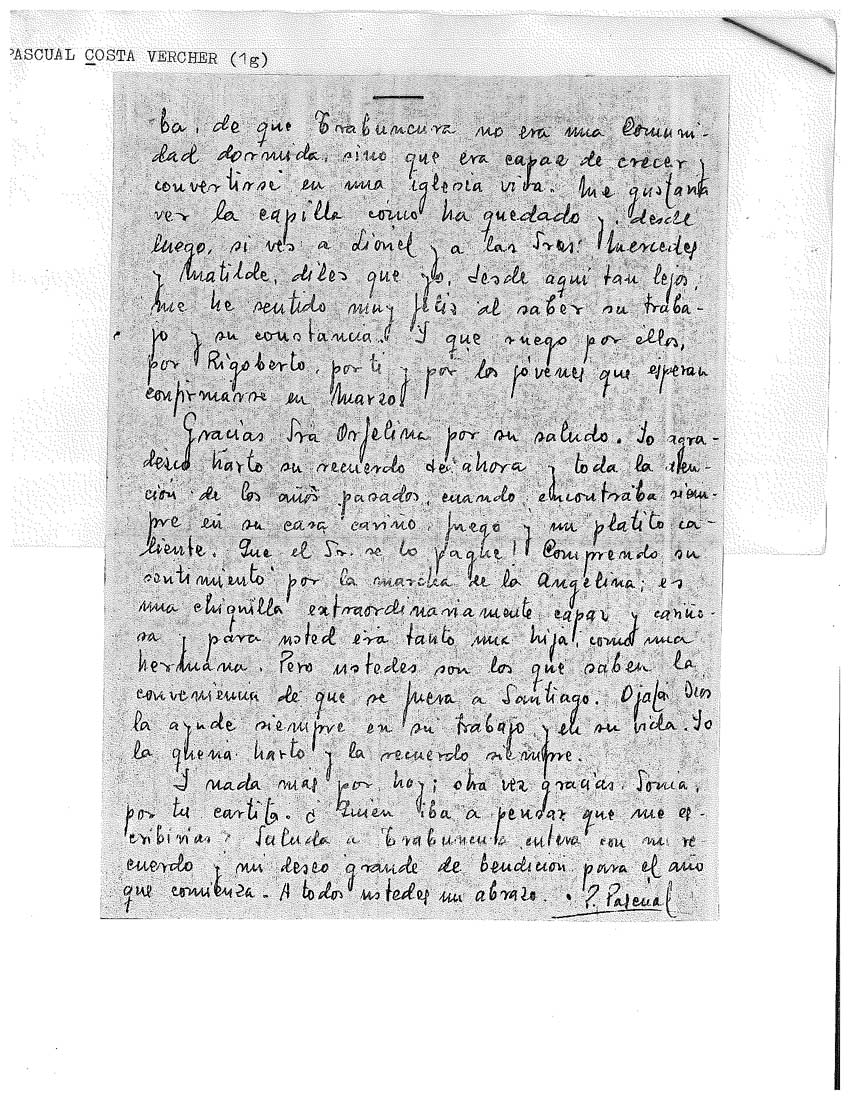 PASCUAL COSTA VERCHER (1g)
ba, de que Trabuncura no era una Comuni-
dad dormida, sino que era capaz de crecer y
convertirse en una iglesia viva. Me gustaria
ver la capilla cómo ha quedado y, desde
luego, si ves a Lionel y a las Sras. Mercedes
y Matilde, diles que yo, desde aqui tan lejos,
me he sentido muy feliz al saber su traba-
jo y su constancia. Y que ruego por ellos,
por Rigoberto, por ti y por los jóvenes que esperan
confirmarse en Marzo.
Gracias Sra Orfelina por su saludo. Yo agra-
desco harto su recuerdo de ahora y toda la aten-
ción de los años pasados, cuando encontraba siem-
pre en su casa cariño, fuego y un platito ca-
liente. Que el Sr. se lo pague! Comprendo su
sentimiento por la marcha de la Angelina; es
una chiquilla extraordinariamente capaz y cariño-
sa y para usted era tanto una hija, como una
hermana. Pero ustedes son los que saben la
conveniencia de que se fuera a Santiago. Ojalá Dios
la ayude siempre en su trabajo y en su vida. Yo
la queria harto y la recuerdo siempre.
Y nada más por hoy; otra vez gracias, Sonia,
por tu cartita. ¿ Quien iba a pensar que me es-
cribirias? Saluda a Trabuncura entera con mi re-
cuerdo y mi deseo grande de bendición para el año
que comienza. A todos ustedes un abrazo. P. Pascual